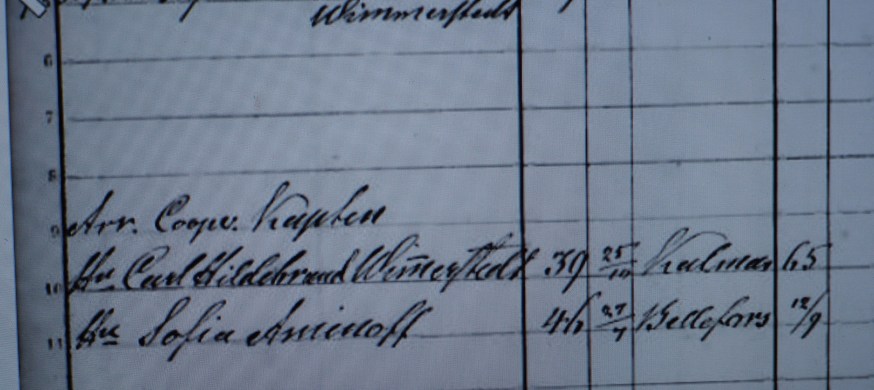 Wimmerstedt
6
7
8
9 Arr. Coopv. Kapten
10 Hr Carl Hildebrand Wim̄erstedt 39 25/10 Kalmar 65
11 Sofia Aminoff 46 27/7 Bellefors 12/9